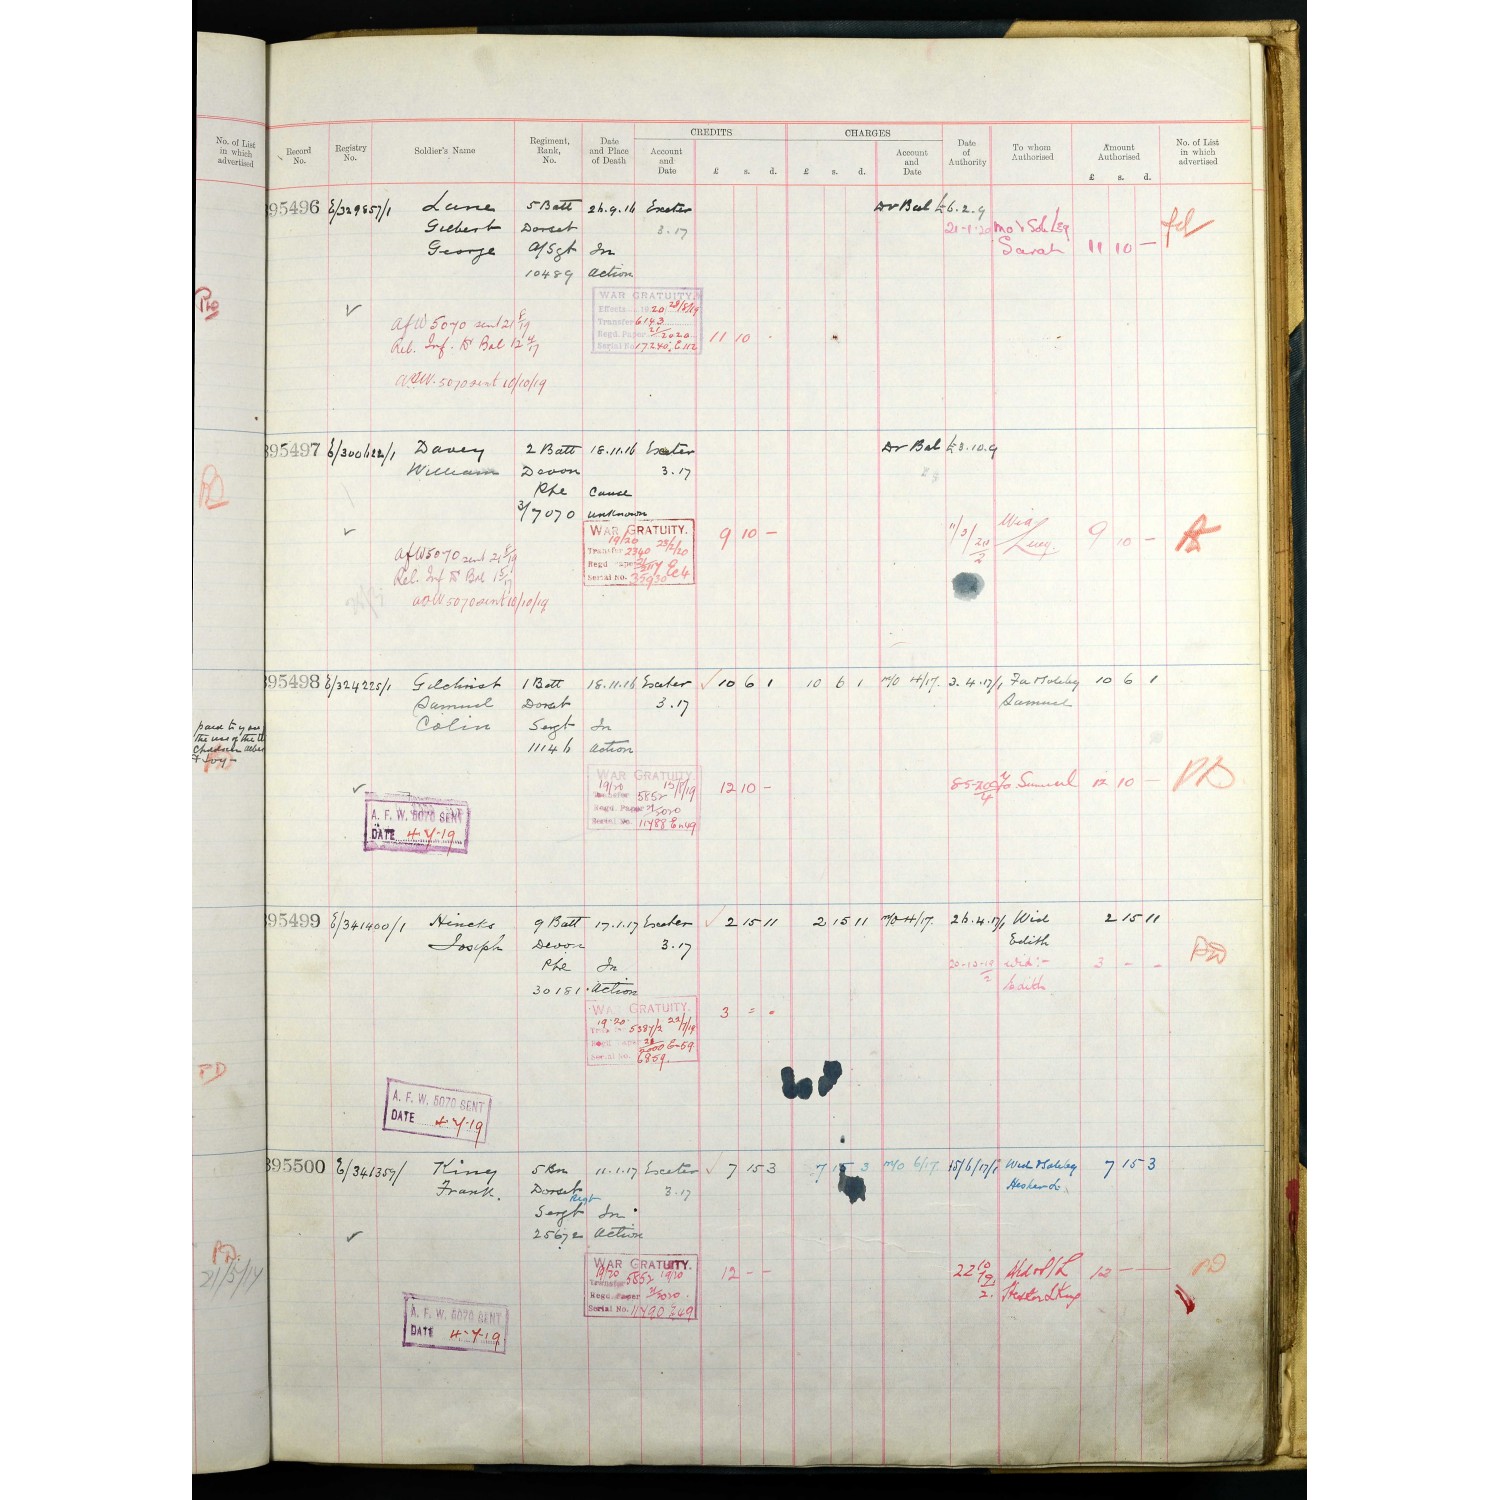 No. of List in which advertised
Record No. Registry No. Soldier's Name Regiment, Rank, No. Date and Place of Death CREDITS Account and Date £ s. d. CHARGES £ s. d. Account and Date Date of Authority To whom Authorised Amount Authorised £ s. d. No. of List in which advertised
95496 E/329857/1 Lane 5 Batt 26.9.16 Exeter Dr Bal £6.2.9
Gilbert Dorset 3.17 21-1-20 Mo & Sole Leg
George A/Sgt In Sarah 11 10 —
10489 action
WAR GRATUITY.
Effects 19 20 28/8/19
AFW 5070 sent 21 8/19 Transfer 6143
Regd. Paper 21/2020 11 10
Rel. Inf. to Bal 12 4/17 Serial No. 17240, E112
AFW. 5070 sent 10/10/19
95497 E/300622/1 Davey 2 Batt 18.11.16 Exeter Dr Bal £3.10.9
William Devon 3.17
Pte Cause
3/7070 unknown
WAR GRATUITY. 9 10 — 11/3/20 Wid 9 10 —
19/20 23/2/20 2 Lucy.
AFW 5070 sent 21 8/19 Transfer 2340
Rel. Inf to Bal Regd Paper
Serial No. 35930
AFW 5070 sent 10/10/19
95498 E/324225/1 Gilchrist 1 Batt 18.11.16 Exeter 10 6 1 10 6 1 M/O 4/17. 3.4.17/1 Fa & Soleleg 10 6 1
Samuel Dorset 3.17 Samuel
Colin Sergt In
11146 action
paid to you
the use of the
children
WAR GRATUITY 12 10 — Samuel 12 10 — PD
19/20 12/8/19
Transfer 5852
Regd. Paper 21/5020
A. F. W. 5070 SENT Serial No. 11488 E49
DATE 4-7-19
95499 E/341400/1 Hincks 9 Batt 17.1.17 Exeter 2 15 11 2 15 11 M/O 4/17. 26.4.17/1 Wid 2 15 11
Joseph Devon 3.17 Edith
Pte In Wid:- 3 — —
30181 Action Edith
WAR GRATUITY. 3 - -
19-20 5387/2 22/7/19
Regd Paper E-59
Serial No. 6859.
PD
A. F. W. 5070 SENT
DATE 4-7-19
95500 E/341359/ King 5 Bn 11.1.17 Exeter 7 15 3 7 15 3 M/O 6/17. 15/6/17/1 Wid & Soleleg 7 15 3
Frank. Dorset Regt 3.17 Hester L.
Sergt In
25672 Action
PD. 21/5/14
WAR GRATUITY. 12 — — 22 10/19 Wid & S/L 12 — — PD
19/20 5852 19/20 2. Hester L King
Transfer
Regd. Paper 21/5020
A. F. W. 5070 SENT Serial No. 11490 E49
DATE 4-7-19